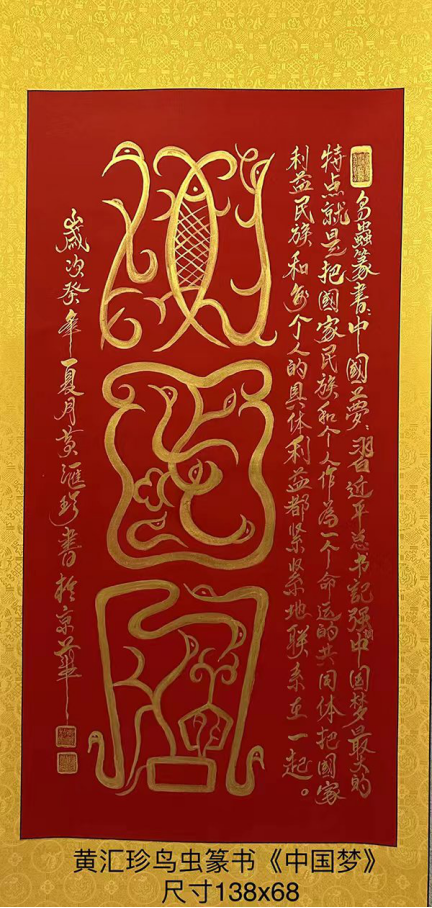 鸟蟲篆書:中國夢:習近平总书記强中国梦最大的
特点就是把國家民族和个人作為一个命运的共同体把國家
利益民族和每个人的具体利益都紧紧地联系在一起。
中國夢
歲次癸年夏月黄滙珍書於京華
黄汇珍鸟虫篆书《中国梦》
尺寸138x68